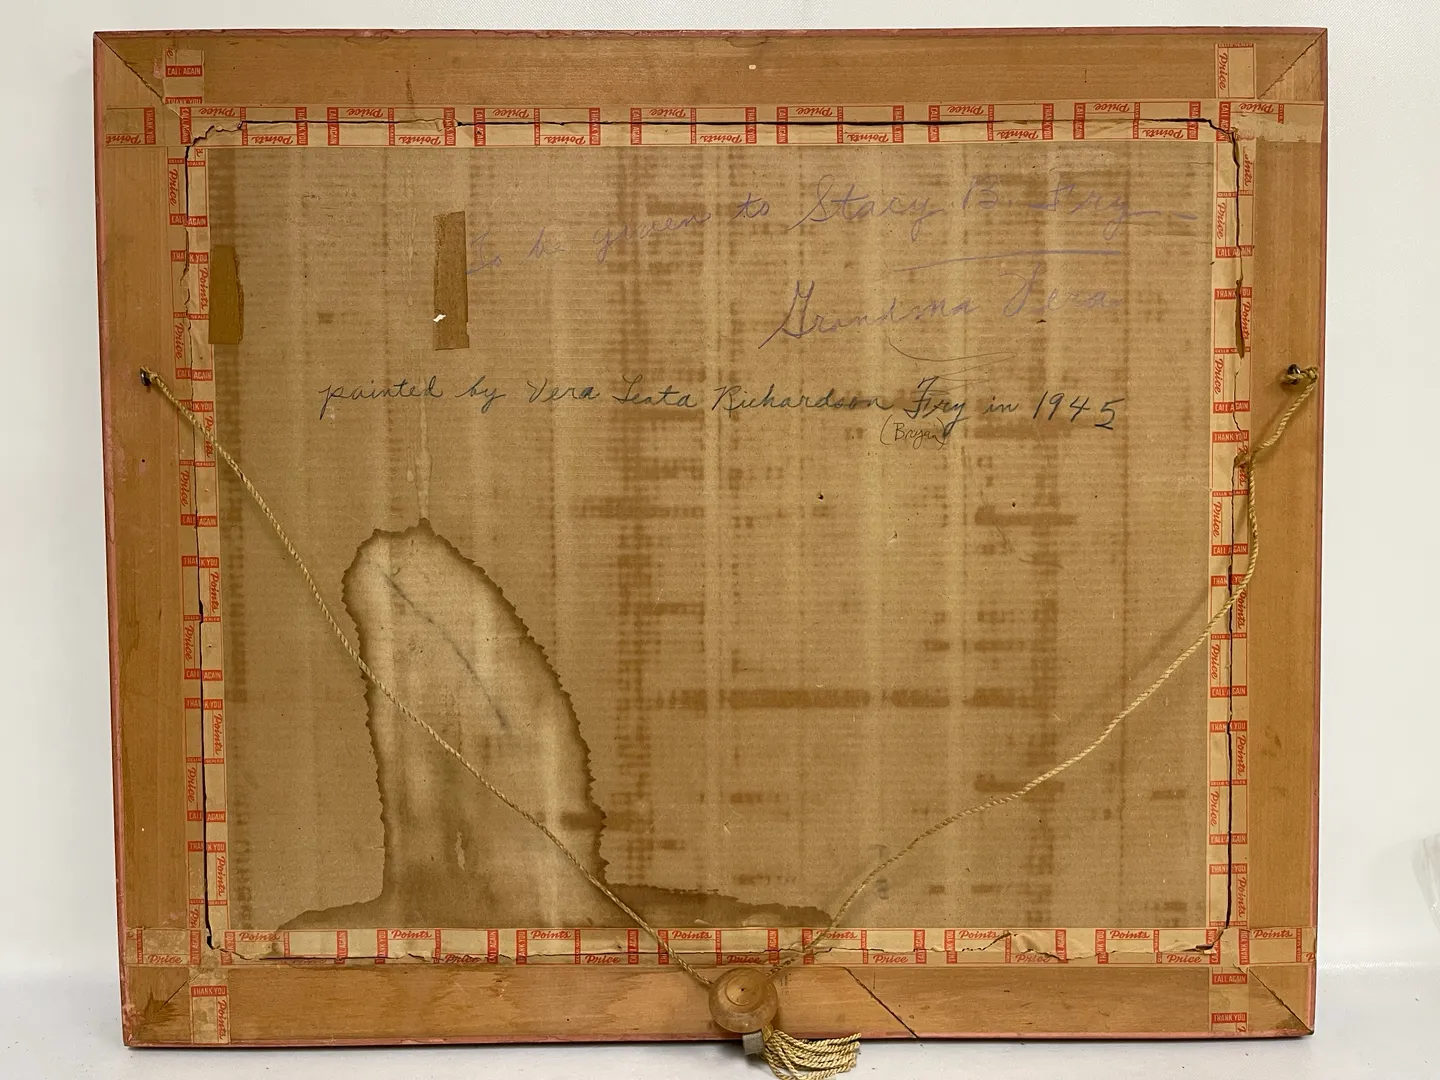 To be given to Stacy B. Fry
Grandma Vera
painted by Vera Leata Richardson Fry in 1945
(Bryan)
Price
Points
THANK YOU
CALL AGAIN